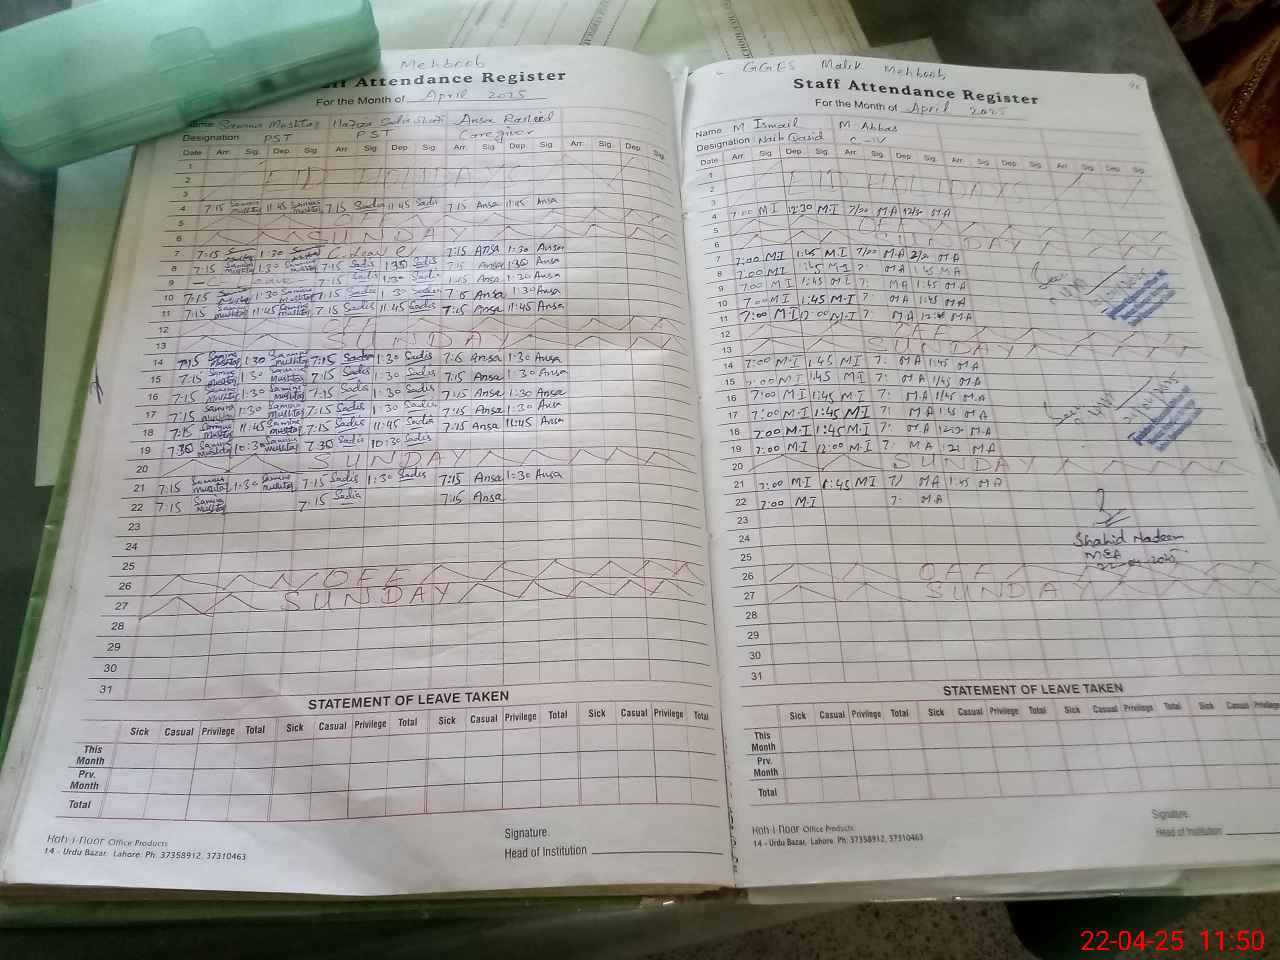 Mehboob
Staff Attendance Register
For the Month of April 2025
Name Samina Mushtaq Hafiza Sadia Shafi Ansa Rasheed
Designation PST PST Caregiver
Date Arr. Sig. Dep. Sig. Arr. Sig. Dep. Sig. Arr. Sig. Dep. Sig. Arr. Sig. Dep. Sig.
1
2 EID HOLIDAYS
3
4 7:15 Samina Mushtaq 11:45 Samina Mushtaq 7:15 Sadia 11:45 Sadia 7:15 Ansa 11:45 Ansa
5 OFF
6 SUNDAY
7 7:15 Samina Mushtaq 1:30 Samina Mushtaq C. Leave 7:15 Ansa 1:30 Ansa
8 7:15 Samina Mushtaq 1:30 Samina Mushtaq 7:15 Sadia 1:30 Sadia 7:15 Ansa 1:30 Ansa
9 7:15 Sadia 1:30 Sadia 7:15 Ansa 1:30 Ansa
10 7:15 1:30 Samina Mushtaq 7:15 Sadia 1:30 Sadia 7:15 Ansa 1:30 Ansa
11 7:15 Samina Mushtaq 11:45 Samina Mushtaq 7:15 Sadia 11:45 Sadia 7:15 Ansa 11:45 Ansa
12 OFF
13 SUNDAY
14 7:15 Samina Mushtaq 1:30 Samina Mushtaq 7:15 Sadia 1:30 Sadia 7:15 Ansa 1:30 Ansa
15 7:15 Samina Mushtaq 1:30 Samina Mushtaq 7:15 Sadia 1:30 Sadia 7:15 Ansa 1:30 Ansa
16 7:15 Samina Mushtaq 1:30 Samina Mushtaq 7:15 Sadia 1:30 Sadia 7:15 Ansa 1:30 Ansa
17 7:15 Samina Mushtaq 1:30 Samina Mushtaq 7:15 Sadia 1:30 Sadia 7:15 Ansa 1:30 Ansa
18 7:15 Samina Mushtaq 11:45 Samina Mushtaq 7:15 Sadia 11:45 Sadia 7:15 Ansa 11:45 Ansa
19 7:30 Samina Mushtaq 10:30 Samina Mushtaq 7:30 Sadia 10:30 Sadia
20 SUNDAY
21 7:15 Samina Mushtaq 1:30 Samina Mushtaq 7:15 Sadia 1:30 Sadia 7:15 Ansa 1:30 Ansa
22 7:15 Samina Mushtaq 7:15 Sadia 7:15 Ansa
23
24
25
26 OFF
27 SUNDAY
28
29
30
31
STATEMENT OF LEAVE TAKEN
Sick Casual Privilege Total Sick Casual Privilege Total Sick Casual Privilege Total
This Month
Prv. Month
Total
Koh-i-noor Office Products
14 - Urdu Bazar, Lahore. Ph: 37358912, 37310463
Signature.
Head of Institution
GGES Malik Mehboob
Staff Attendance Register
For the Month of April 2025
Name M Ismail M Abbas
Designation Naib Qasid C-IV
Date Arr. Sig. Dep. Sig. Arr. Sig. Dep. Sig. Arr. Sig. Dep. Sig. Arr. Sig. Dep. Sig.
1
2 EID HOLIDAYS
3
4 7:00 M I 12:30 M.I M A M A
5 OFF
6 SUNDAY
7 7:00 M I 1:45 M.I M A M A
8 7:00 M I 1:45 M I 7: M A 1:45 M A
9 7:00 M I 1:45 M.I 7: M A 1:45 M A
10 7:00 M I 1:45 M.I 7: M A 1:45 M A
11 7:00 M.I 12:00 M.I 7: M A M A
12 OFF
13 SUNDAY
14 7:00 M.I 1:45 M I 7: M A 1:45 M A
15 7:00 M.I 1:45 M I 7: M A 1:45 M A
16 7:00 M I 1:45 M.I 7: M A 1:45 M A
17 7:00 M.I 1:45 M.I 7: M A 1:45 M A
18 7:00 M.I 1:45 M.I 7: M A M A
19 7:00 M.I 12:00 M.I 7: M A M A
20 SUNDAY
21 7:00 M I 1:45 M I M A 1:45 M A
22 7:00 M.I 7: M A
23
24 Shahid Nadeem
25 MEA
22-04-2025
26 OFF
27 SUNDAY
28
29
30
31
STATEMENT OF LEAVE TAKEN
Sick Casual Privilege Total Sick Casual Privilege Total Sick Casual Privilege Total Sick Casual Privilege
This Month
Prv. Month
Total
Koh-i-noor Office Products
14 - Urdu Bazar, Lahore. Ph: 37358912, 37310463
Signature.
Head of Institution
22-04-25 11:50